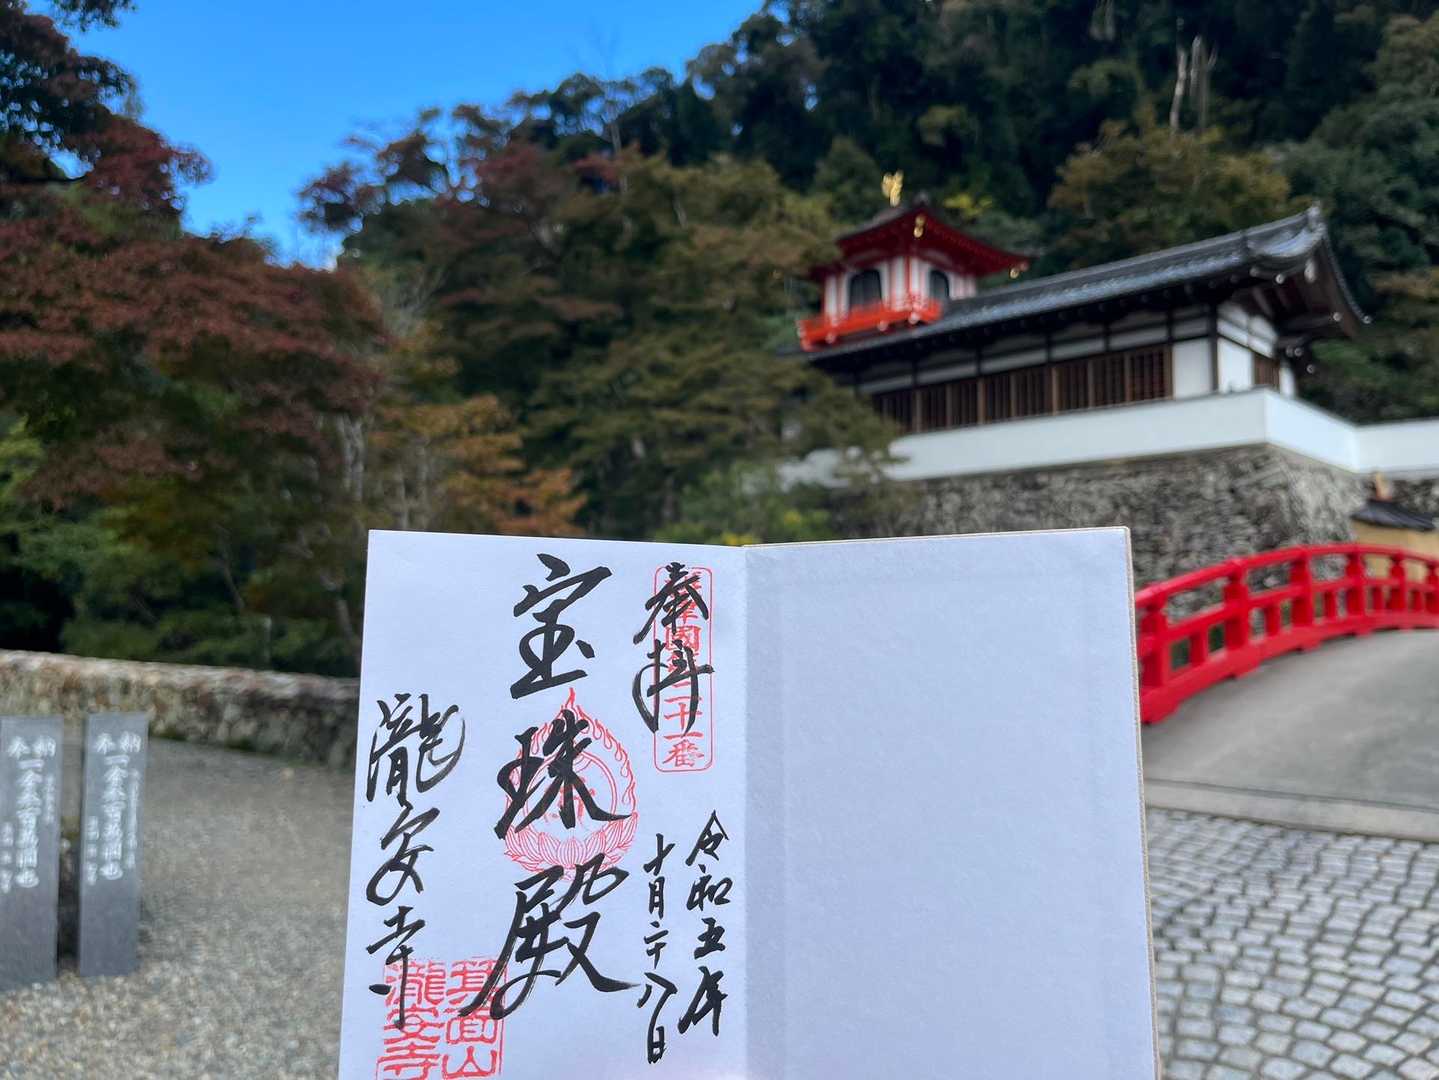 奉拝
二十一番
宝珠殿
令和五年
十月二十八日
瀧安寺
箕面山
瀧安寺
奉納
奉納